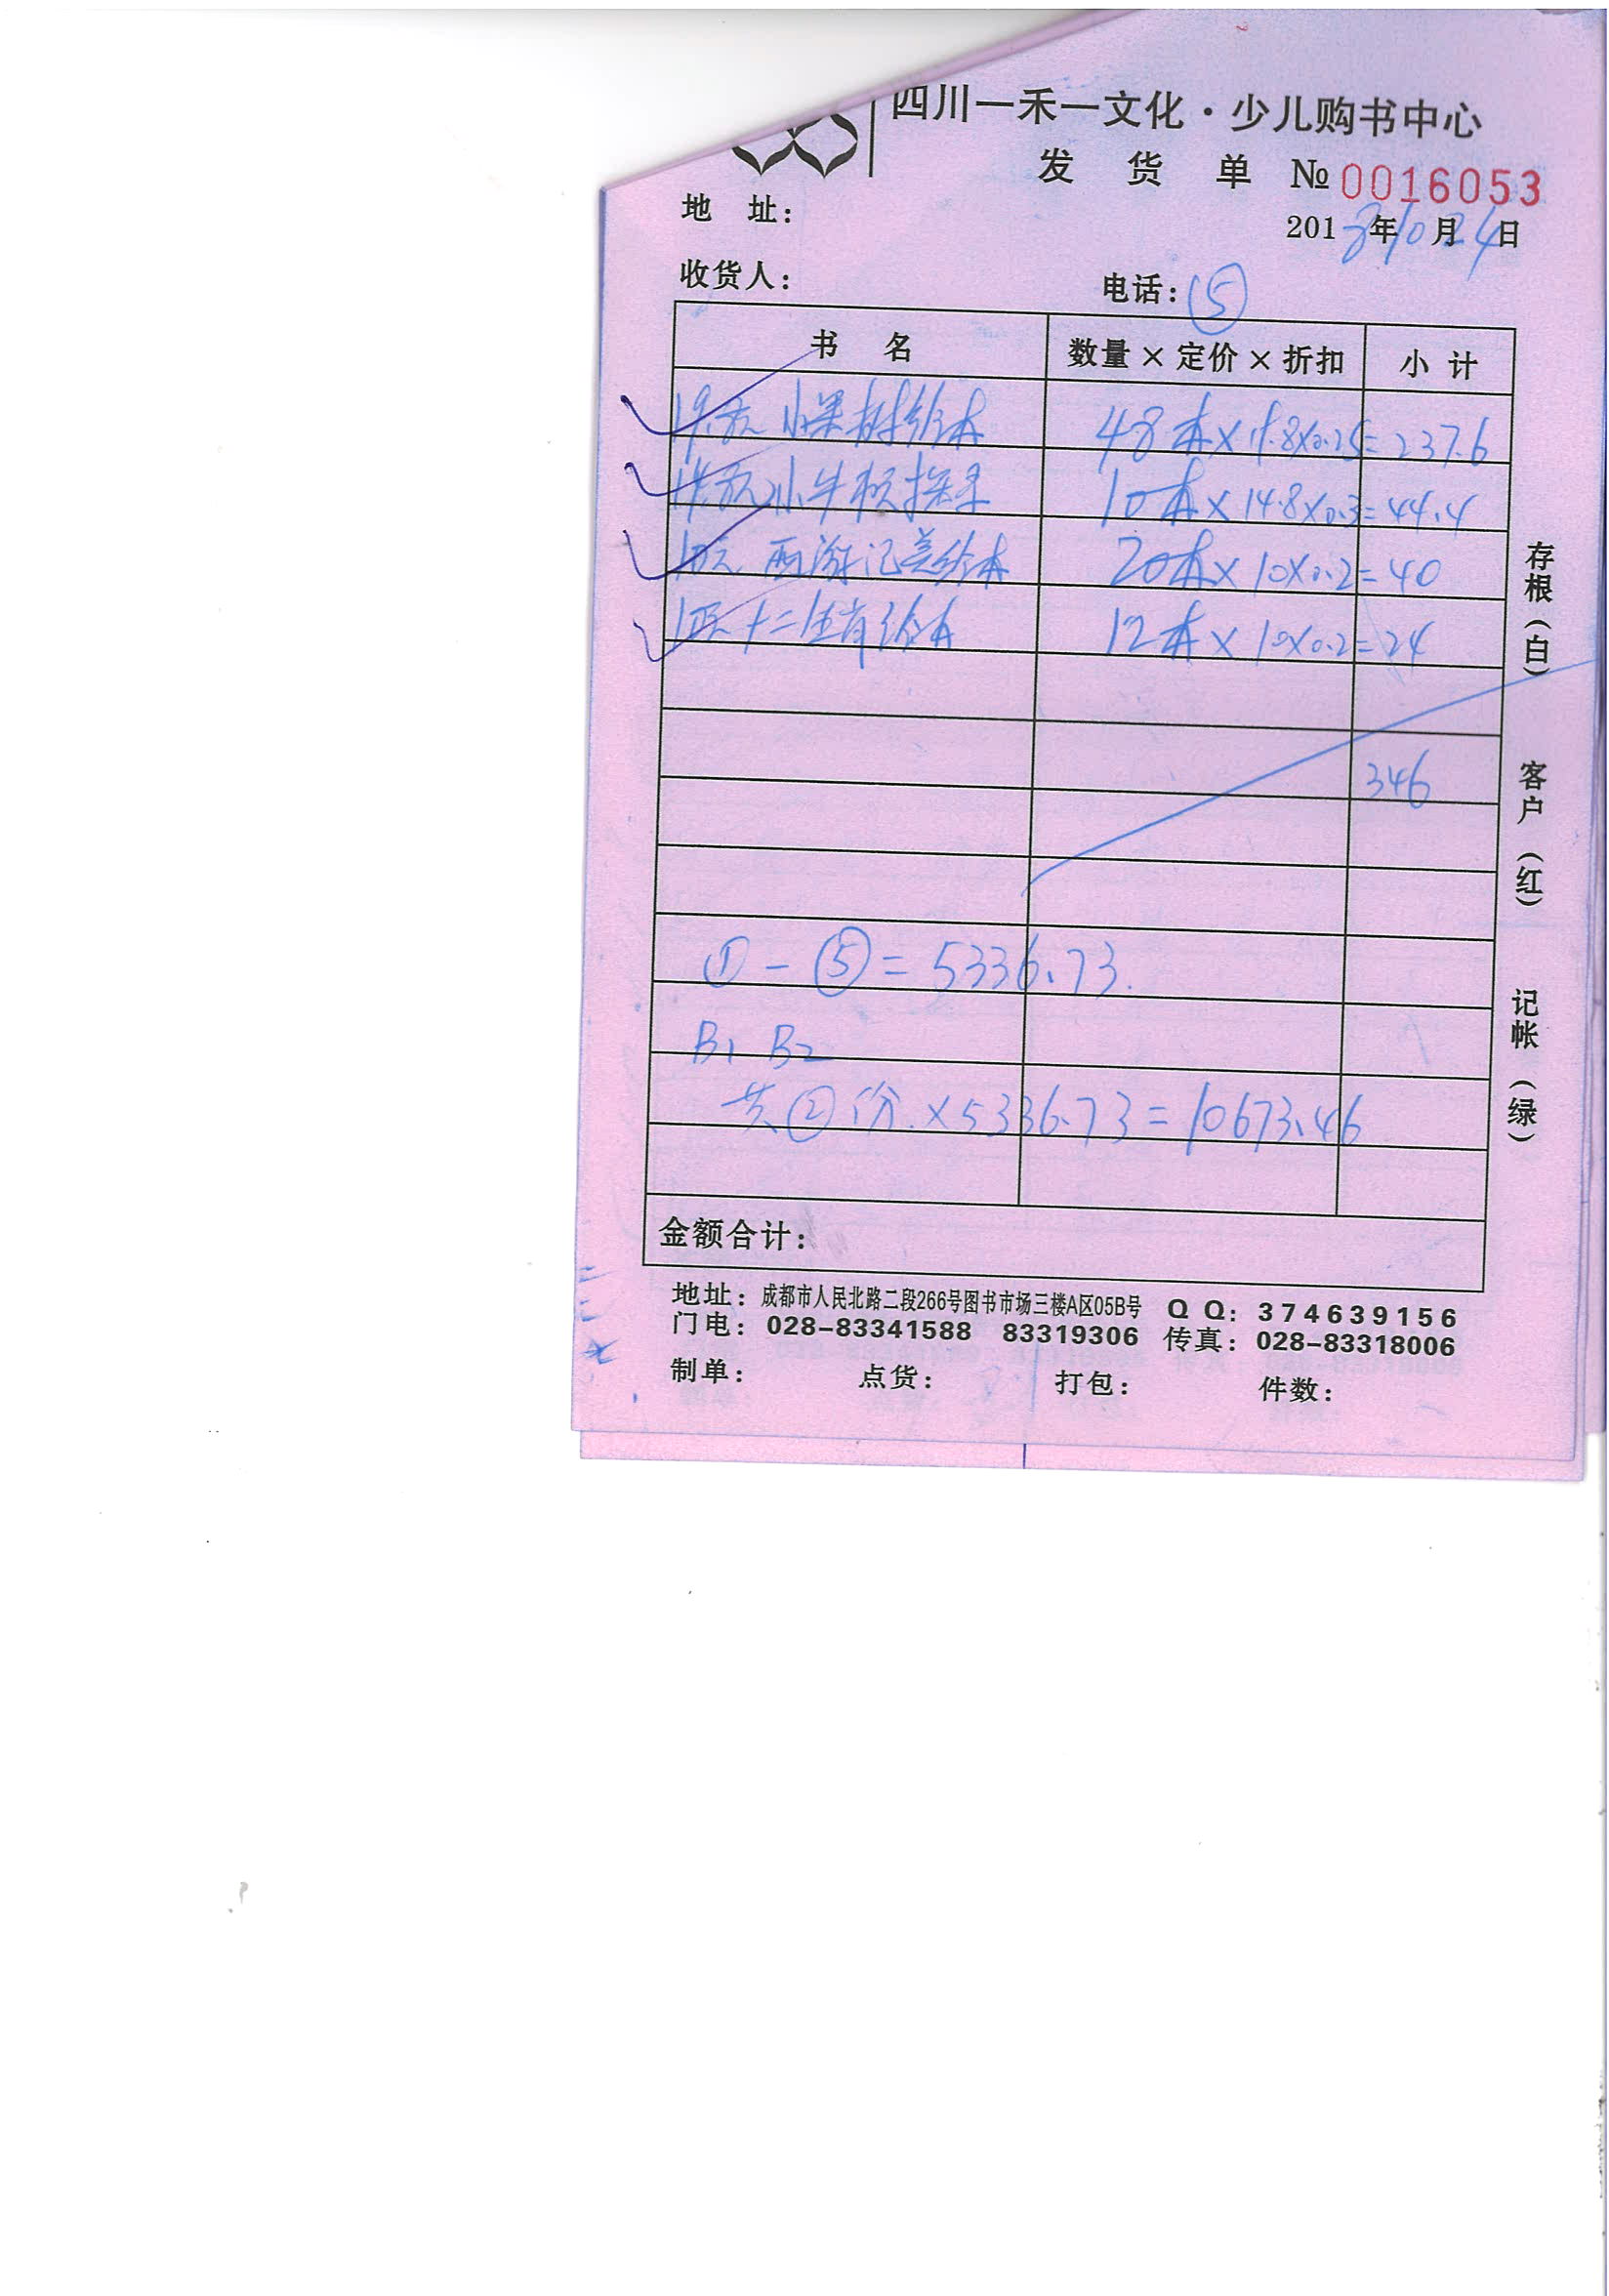 四川一禾一文化·少儿购书中心
发 货 单 № 0016053
地 址：
2013年10月24日
收货人： 电话：⑤
书 名 数量×定价×折扣 小 计
19.8元 小果树绘本 48本×19.8×0.25=237.6
14.8元 小牛顿探寻 10本×14.8×0.3=44.4
10元 西游记美绘本 20本×10×0.2=40
10元 十二生肖绘本 12本×10×0.2=24
346
①-⑤=5336.73.
B1 B2
共②份.×5336.73=10673.46
金额合计：
地址：成都市人民北路二段266号图书市场三楼A区05B号 QQ：374639156
门电：028-83341588 83319306 传真：028-83318006
制单： 点货： 打包： 件数：
存根（白） 客户（红） 记帐（绿）